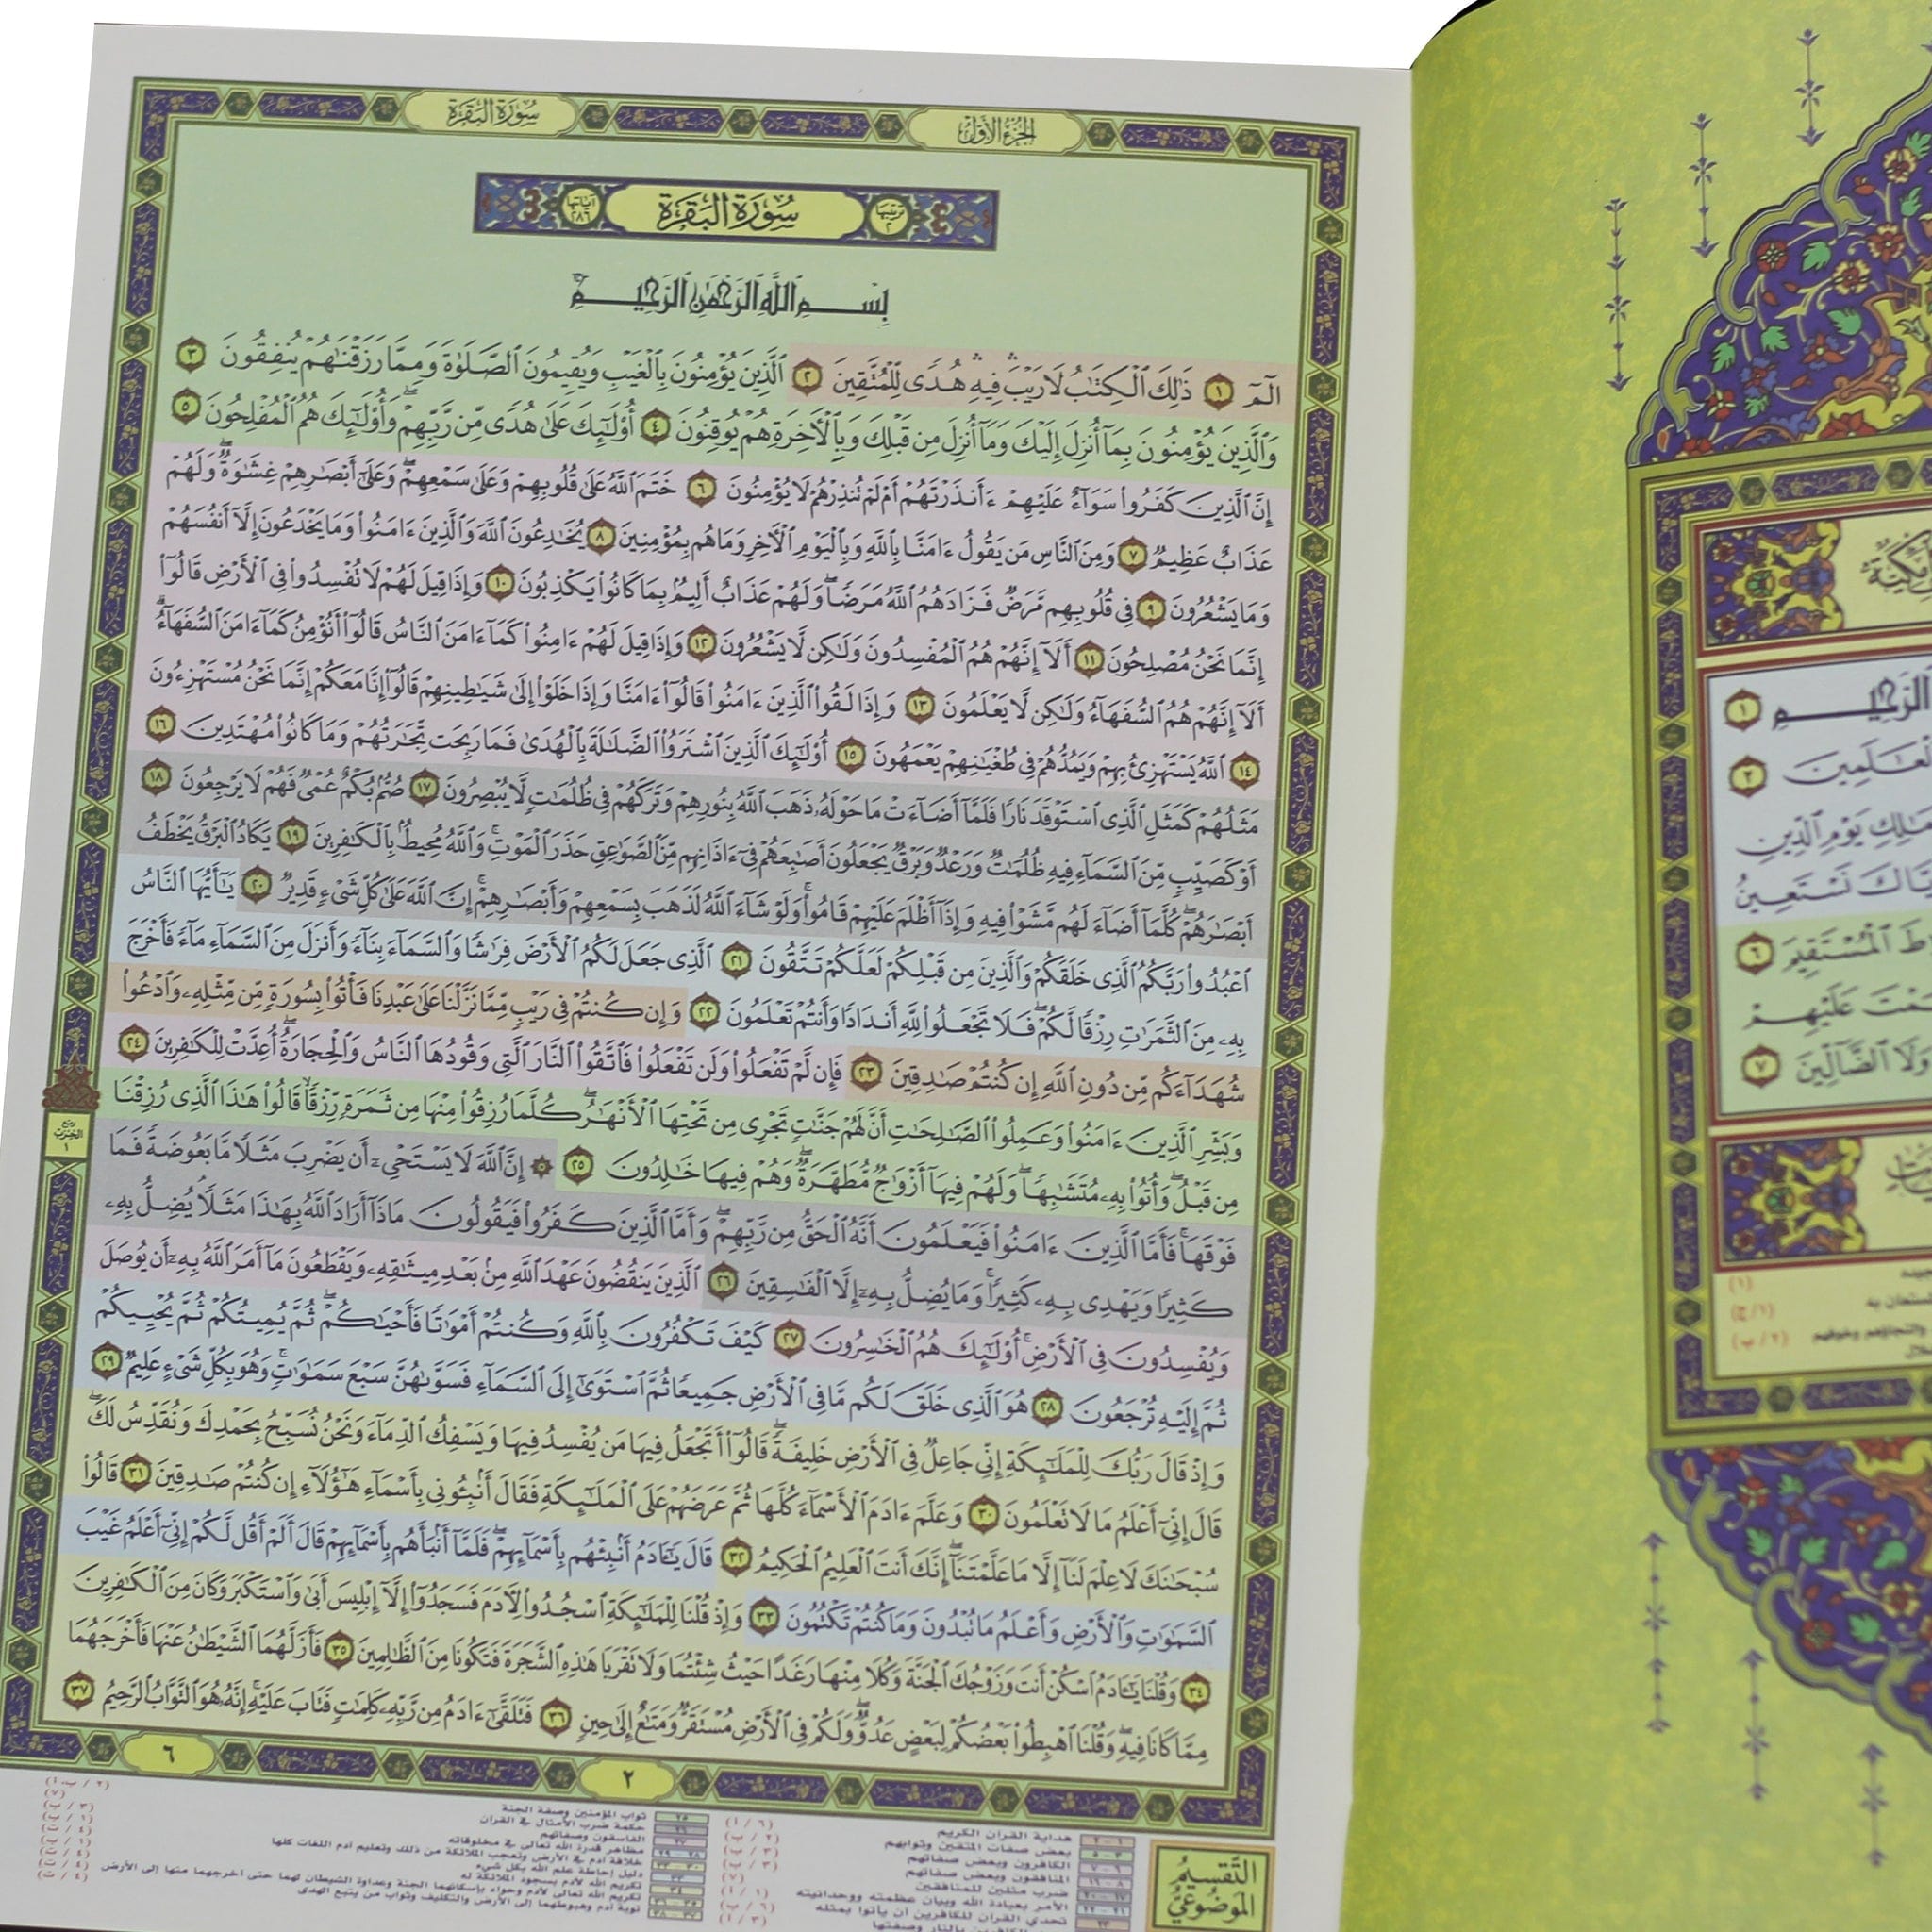 الجزء الأول
سورة البقرة
ترتيبها ٢
سُورَةُ البَقَرَةِ
آياتها ٢٨٦
بِسْمِ ٱللَّهِ ٱلرَّحْمَٰنِ ٱلرَّحِيمِ
الٓمٓ ١ ذَٰلِكَ ٱلْكِتَٰبُ لَا رَيْبَ ۛ فِيهِ ۛ هُدًى لِّلْمُتَّقِينَ ٢ ٱلَّذِينَ يُؤْمِنُونَ بِٱلْغَيْبِ وَيُقِيمُونَ ٱلصَّلَوٰةَ وَمِمَّا رَزَقْنَٰهُمْ يُنفِقُونَ ٣
وَٱلَّذِينَ يُؤْمِنُونَ بِمَآ أُنزِلَ إِلَيْكَ وَمَآ أُنزِلَ مِن قَبْلِكَ وَبِٱلْءَاخِرَةِ هُمْ يُوقِنُونَ ٤ أُو۟لَٰٓئِكَ عَلَىٰ هُدًى مِّن رَّبِّهِمْ ۖ وَأُو۟لَٰٓئِكَ هُمُ ٱلْمُفْلِحُونَ ٥
إِنَّ ٱلَّذِينَ كَفَرُوا۟ سَوَآءٌ عَلَيْهِمْ ءَأَنذَرْتَهُمْ أَمْ لَمْ تُنذِرْهُمْ لَا يُؤْمِنُونَ ٦ خَتَمَ ٱللَّهُ عَلَىٰ قُلُوبِهِمْ وَعَلَىٰ سَمْعِهِمْ ۖ وَعَلَىٰٓ أَبْصَٰرِهِمْ غِشَٰوَةٌ ۖ وَلَهُمْ
عَذَابٌ عَظِيمٌ ٧ وَمِنَ ٱلنَّاسِ مَن يَقُولُ ءَامَنَّا بِٱللَّهِ وَبِٱلْيَوْمِ ٱلْءَاخِرِ وَمَا هُم بِمُؤْمِنِينَ ٨ يُخَٰدِعُونَ ٱللَّهَ وَٱلَّذِينَ ءَامَنُوا۟ وَمَا يَخْدَعُونَ إِلَّآ أَنفُسَهُمْ
وَمَا يَشْعُرُونَ ٩ فِى قُلُوبِهِم مَّرَضٌ فَزَادَهُمُ ٱللَّهُ مَرَضًا ۖ وَلَهُمْ عَذَابٌ أَلِيمٌۢ بِمَا كَانُوا۟ يَكْذِبُونَ ١٠ وَإِذَا قِيلَ لَهُمْ لَا تُفْسِدُوا۟ فِى ٱلْأَرْضِ قَالُوٓا۟
إِنَّمَا نَحْنُ مُصْلِحُونَ ١١ أَلَآ إِنَّهُمْ هُمُ ٱلْمُفْسِدُونَ وَلَٰكِن لَّا يَشْعُرُونَ ١٢ وَإِذَا قِيلَ لَهُمْ ءَامِنُوا۟ كَمَآ ءَامَنَ ٱلنَّاسُ قَالُوٓا۟ أَنُؤْمِنُ كَمَآ ءَامَنَ ٱلسُّفَهَآءُ ۗ
أَلَآ إِنَّهُمْ هُمُ ٱلسُّفَهَآءُ وَلَٰكِن لَّا يَعْلَمُونَ ١٣ وَإِذَا لَقُوا۟ ٱلَّذِينَ ءَامَنُوا۟ قَالُوٓا۟ ءَامَنَّا وَإِذَا خَلَوْا۟ إِلَىٰ شَيَٰطِينِهِمْ قَالُوٓا۟ إِنَّا مَعَكُمْ إِنَّمَا نَحْنُ مُسْتَهْزِءُونَ
١٤ ٱللَّهُ يَسْتَهْزِئُ بِهِمْ وَيَمُدُّهُمْ فِى طُغْيَٰنِهِمْ يَعْمَهُونَ ١٥ أُو۟لَٰٓئِكَ ٱلَّذِينَ ٱشْتَرَوُا۟ ٱلضَّلَٰلَةَ بِٱلْهُدَىٰ فَمَا رَبِحَت تِّجَٰرَتُهُمْ وَمَا كَانُوا۟ مُهْتَدِينَ ١٦
مَثَلُهُمْ كَمَثَلِ ٱلَّذِى ٱسْتَوْقَدَ نَارًا فَلَمَّآ أَضَآءَتْ مَا حَوْلَهُۥ ذَهَبَ ٱللَّهُ بِنُورِهِمْ وَتَرَكَهُمْ فِى ظُلُمَٰتٍ لَّا يُبْصِرُونَ ١٧ صُمٌّۢ بُكْمٌ عُمْىٌ فَهُمْ لَا يَرْجِعُونَ ١٨
أَوْ كَصَيِّبٍ مِّنَ ٱلسَّمَآءِ فِيهِ ظُلُمَٰتٌ وَرَعْدٌ وَبَرْقٌ يَجْعَلُونَ أَصَٰبِعَهُمْ فِىٓ ءَاذَانِهِم مِّنَ ٱلصَّوَٰعِقِ حَذَرَ ٱلْمَوْتِ ۚ وَٱللَّهُ مُحِيطٌۢ بِٱلْكَٰفِرِينَ ١٩ يَكَادُ ٱلْبَرْقُ يَخْطَفُ
أَبْصَٰرَهُمْ ۖ كُلَّمَآ أَضَآءَ لَهُم مَّشَوْا۟ فِيهِ وَإِذَآ أَظْلَمَ عَلَيْهِمْ قَامُوا۟ ۚ وَلَوْ شَآءَ ٱللَّهُ لَذَهَبَ بِسَمْعِهِمْ وَأَبْصَٰرِهِمْ ۚ إِنَّ ٱللَّهَ عَلَىٰ كُلِّ شَىْءٍ قَدِيرٌ ٢٠ يَٰٓأَيُّهَا ٱلنَّاسُ
ٱعْبُدُوا۟ رَبَّكُمُ ٱلَّذِى خَلَقَكُمْ وَٱلَّذِينَ مِن قَبْلِكُمْ لَعَلَّكُمْ تَتَّقُونَ ٢١ ٱلَّذِى جَعَلَ لَكُمُ ٱلْأَرْضَ فِرَٰشًا وَٱلسَّمَآءَ بِنَآءً وَأَنزَلَ مِنَ ٱلسَّمَآءِ مَآءً فَأَخْرَجَ
بِهِۦ مِنَ ٱلثَّمَرَٰتِ رِزْقًا لَّكُمْ ۖ فَلَا تَجْعَلُوا۟ لِلَّهِ أَندَادًا وَأَنتُمْ تَعْلَمُونَ ٢٢ وَإِن كُنتُمْ فِى رَيْبٍ مِّمَّا نَزَّلْنَا عَلَىٰ عَبْدِنَا فَأْتُوا۟ بِسُورَةٍ مِّن مِّثْلِهِۦ وَٱدْعُوا۟
شُهَدَآءَكُم مِّن دُونِ ٱللَّهِ إِن كُنتُمْ صَٰدِقِينَ ٢٣ فَإِن لَّمْ تَفْعَلُوا۟ وَلَن تَفْعَلُوا۟ فَٱتَّقُوا۟ ٱلنَّارَ ٱلَّتِى وَقُودُهَا ٱلنَّاسُ وَٱلْحِجَارَةُ ۖ أُعِدَّتْ لِلْكَٰفِرِينَ ٢٤
وَبَشِّرِ ٱلَّذِينَ ءَامَنُوا۟ وَعَمِلُوا۟ ٱلصَّٰلِحَٰتِ أَنَّ لَهُمْ جَنَّٰتٍ تَجْرِى مِن تَحْتِهَا ٱلْأَنْهَٰرُ ۖ كُلَّمَا رُزِقُوا۟ مِنْهَا مِن ثَمَرَةٍ رِّزْقًا ۙ قَالُوا۟ هَٰذَا ٱلَّذِى رُزِقْنَا
مِن قَبْلُ ۖ وَأُتُوا۟ بِهِۦ مُتَشَٰبِهًا ۖ وَلَهُمْ فِيهَآ أَزْوَٰجٌ مُّطَهَّرَةٌ ۖ وَهُمْ فِيهَا خَٰلِدُونَ ٢٥ ۞ إِنَّ ٱللَّهَ لَا يَسْتَحْىِۦٓ أَن يَضْرِبَ مَثَلًا مَّا بَعُوضَةً فَمَا
فَوْقَهَا ۚ فَأَمَّا ٱلَّذِينَ ءَامَنُوا۟ فَيَعْلَمُونَ أَنَّهُ ٱلْحَقُّ مِن رَّبِّهِمْ ۖ وَأَمَّا ٱلَّذِينَ كَفَرُوا۟ فَيَقُولُونَ مَاذَآ أَرَادَ ٱللَّهُ بِهَٰذَا مَثَلًا ۘ يُضِلُّ بِهِۦ
كَثِيرًا وَيَهْدِى بِهِۦ كَثِيرًا ۚ وَمَا يُضِلُّ بِهِۦٓ إِلَّا ٱلْفَٰسِقِينَ ٢٦ ٱلَّذِينَ يَنقُضُونَ عَهْدَ ٱللَّهِ مِنۢ بَعْدِ مِيثَٰقِهِۦ وَيَقْطَعُونَ مَآ أَمَرَ ٱللَّهُ بِهِۦٓ أَن يُوصَلَ
وَيُفْسِدُونَ فِى ٱلْأَرْضِ ۚ أُو۟لَٰٓئِكَ هُمُ ٱلْخَٰسِرُونَ ٢٧ كَيْفَ تَكْفُرُونَ بِٱللَّهِ وَكُنتُمْ أَمْوَٰتًا فَأَحْيَٰكُمْ ۖ ثُمَّ يُمِيتُكُمْ ثُمَّ يُحْيِيكُمْ
ثُمَّ إِلَيْهِ تُرْجَعُونَ ٢٨ هُوَ ٱلَّذِى خَلَقَ لَكُم مَّا فِى ٱلْأَرْضِ جَمِيعًا ثُمَّ ٱسْتَوَىٰٓ إِلَى ٱلسَّمَآءِ فَسَوَّىٰهُنَّ سَبْعَ سَمَٰوَٰتٍ ۚ وَهُوَ بِكُلِّ شَىْءٍ عَلِيمٌ ٢٩
وَإِذْ قَالَ رَبُّكَ لِلْمَلَٰٓئِكَةِ إِنِّى جَاعِلٌ فِى ٱلْأَرْضِ خَلِيفَةً ۖ قَالُوٓا۟ أَتَجْعَلُ فِيهَا مَن يُفْسِدُ فِيهَا وَيَسْفِكُ ٱلدِّمَآءَ وَنَحْنُ نُسَبِّحُ بِحَمْدِكَ وَنُقَدِّسُ لَكَ ۖ
قَالَ إِنِّىٓ أَعْلَمُ مَا لَا تَعْلَمُونَ ٣٠ وَعَلَّمَ ءَادَمَ ٱلْأَسْمَآءَ كُلَّهَا ثُمَّ عَرَضَهُمْ عَلَى ٱلْمَلَٰٓئِكَةِ فَقَالَ أَنۢبِـُٔونِى بِأَسْمَآءِ هَٰٓؤُلَآءِ إِن كُنتُمْ صَٰدِقِينَ ٣١ قَالُوا۟
سُبْحَٰنَكَ لَا عِلْمَ لَنَآ إِلَّا مَا عَلَّمْتَنَآ ۖ إِنَّكَ أَنتَ ٱلْعَلِيمُ ٱلْحَكِيمُ ٣٢ قَالَ يَٰٓـَٔادَمُ أَنۢبِئْهُم بِأَسْمَآئِهِمْ ۖ فَلَمَّآ أَنۢبَأَهُم بِأَسْمَآئِهِمْ قَالَ أَلَمْ أَقُل لَّكُمْ إِنِّىٓ أَعْلَمُ غَيْبَ
ٱلسَّمَٰوَٰتِ وَٱلْأَرْضِ وَأَعْلَمُ مَا تُبْدُونَ وَمَا كُنتُمْ تَكْتُمُونَ ٣٣ وَإِذْ قُلْنَا لِلْمَلَٰٓئِكَةِ ٱسْجُدُوا۟ لِءَادَمَ فَسَجَدُوٓا۟ إِلَّآ إِبْلِيسَ أَبَىٰ وَٱسْتَكْبَرَ وَكَانَ مِنَ ٱلْكَٰفِرِينَ
٣٤ وَقُلْنَا يَٰٓـَٔادَمُ ٱسْكُنْ أَنتَ وَزَوْجُكَ ٱلْجَنَّةَ وَكُلَا مِنْهَا رَغَدًا حَيْثُ شِئْتُمَا وَلَا تَقْرَبَا هَٰذِهِ ٱلشَّجَرَةَ فَتَكُونَا مِنَ ٱلظَّٰلِمِينَ ٣٥ فَأَزَلَّهُمَا ٱلشَّيْطَٰنُ عَنْهَا فَأَخْرَجَهُمَا
مِمَّا كَانَا فِيهِ ۖ وَقُلْنَا ٱهْبِطُوا۟ بَعْضُكُمْ لِبَعْضٍ عَدُوٌّ ۖ وَلَكُمْ فِى ٱلْأَرْضِ مُسْتَقَرٌّ وَمَتَٰعٌ إِلَىٰ حِينٍ ٣٦ فَتَلَقَّىٰٓ ءَادَمُ مِن رَّبِّهِۦ كَلِمَٰتٍ فَتَابَ عَلَيْهِ ۚ إِنَّهُۥ هُوَ ٱلتَّوَّابُ ٱلرَّحِيمُ ٣٧
ربع الحزب ١
٢
٦
التقسيم الموضوعي
هداية القرآن الكريم
بعض صفات المتقين وثوابهم
الكافرون وبعض صفاتهم
المنافقون وبعض صفاتهم
ضرب مثلين للمنافقين
الأمر بعبادة الله وبيان عظمته ووحدانيته
تحدي القرآن للكافرين أن يأتوا بمثله
ثواب المؤمنين وصفة الجنة
حكمة ضرب الأمثال في القرآن
الفاسقون وصفاتهم
مظاهر قدرة الله تعالى في مخلوقاته
خلافة آدم في الأرض وتعجب الملائكة من ذلك وتعليم آدم اللغات كلها
دليل إحاطة علم الله بكل شيء
تكريم الله لآدم بسجود الملائكة له
تكريم الله تعالى لآدم وحواء بإسكانهما الجنة وعداوة الشيطان لهما حتى أخرجهما منها إلى الأرض
توبة آدم وهبوطهما إلى الأرض والتكليف وثواب من يتبع الهدى
ٱلرَّحِيمِ ١
ٱلْعَٰلَمِينَ ٢
مَٰلِكِ يَوْمِ ٱلدِّينِ
نَسْتَعِينُ
ٱلْمُسْتَقِيمَ ٦
عَلَيْهِمْ
وَلَا ٱلضَّآلِّينَ ٧